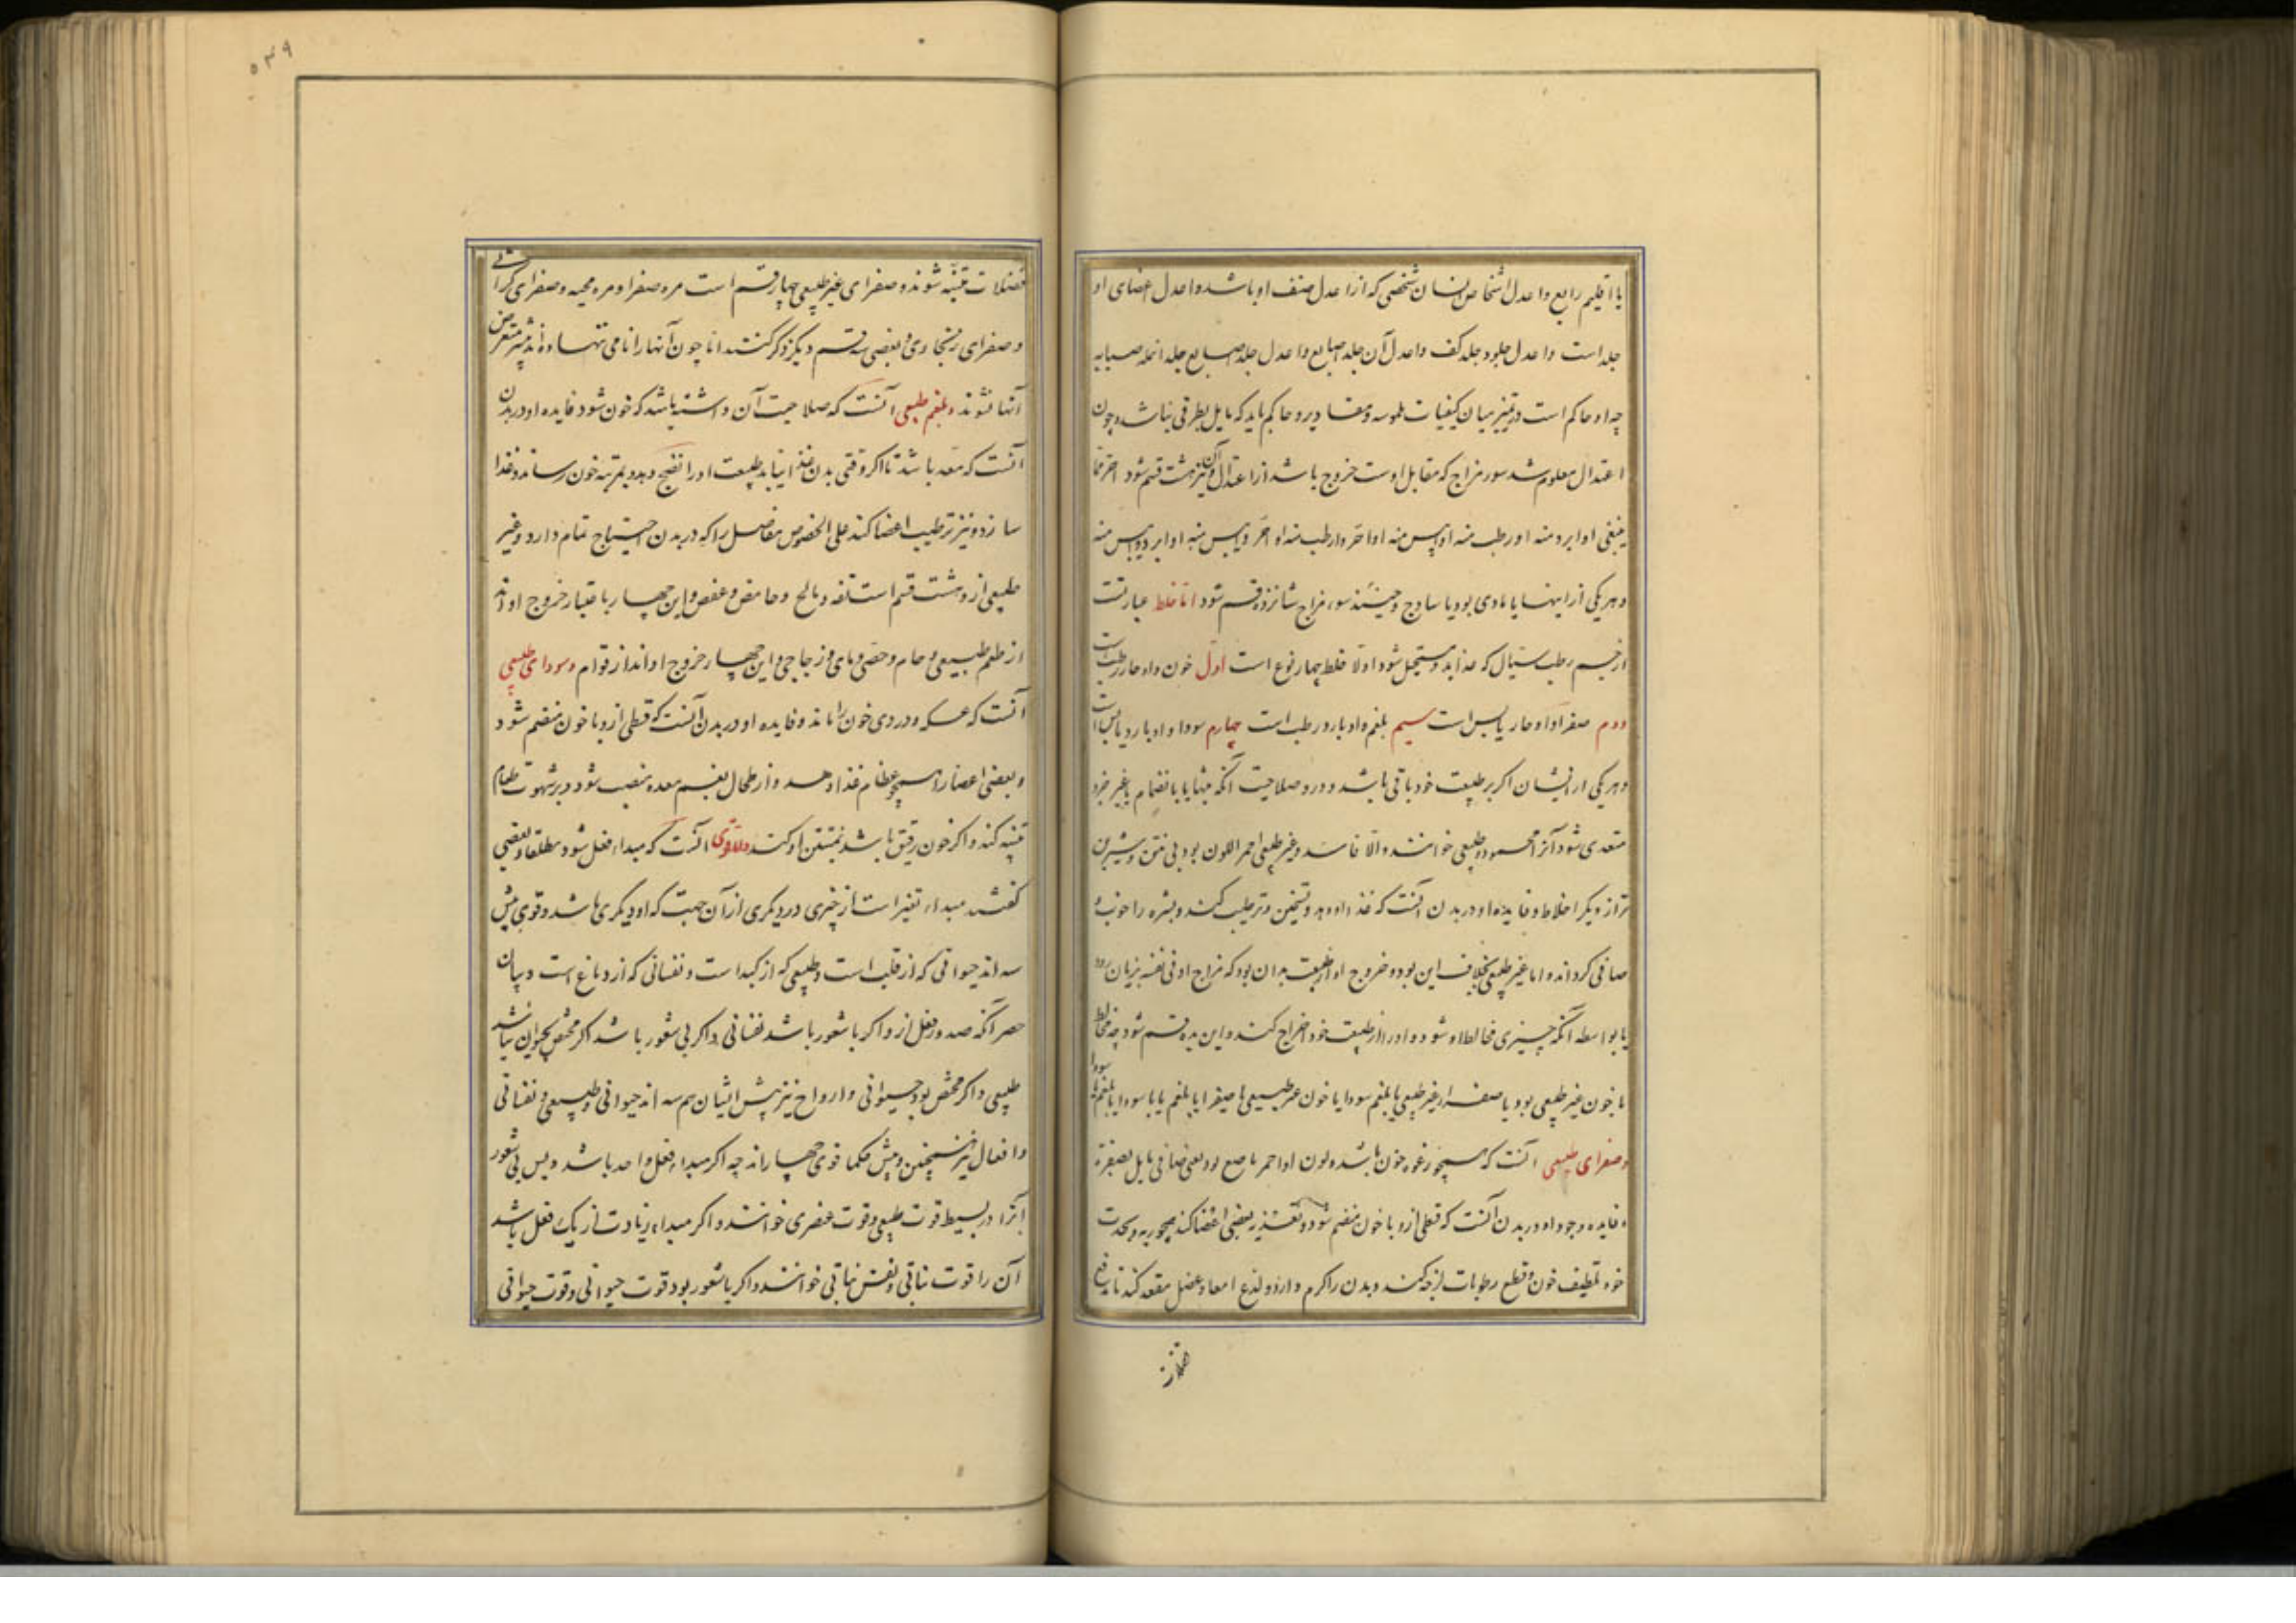 یا اقلیم رابع واعدل اشخاص انسان شخصی که ازاعدل صنف او باشد واعدل اعضای او
جلد است واعدل جلود جلد کف واعدل آن جلد اصابع واعدل جلد اصابع جلد انمله سبابه
چه او حاکم است در تمیز میان کیفیات ملموسه ومقادیر وحاکم باید که مایل بطرفی نباشد وچون
اعتدال معلوم شد سور مزاج که مقابل اوست خروج باشد از اعتدال وآن نیز هشت قسم شود احر مما
ینبغی او ابرد منه او رطب منه او ایبس منه او احر وارطب منه او احر وایبس منه او ابرد وایبس منه
وهریکی ازاینها یا مادی بود یا ساذج وحینئذ سوء مزاج شانزده قسم شود اما خلط عبارتست
ازجسم رطب سیال که غذا بدو مستحیل شود اولا خلط چهار نوع است اول خون واو حار رطب است
دوم صفرا واو حار یابس است سیم بلغم واو بارد رطب است چهارم سودا واو بارد یابس است
وهریکی ازایشان اکر بر طبیعت خود باقی باشد ودرو صلاحیت آنکه تنها یا با نضمام با غیر جزو
متعدی شود آنرا محمود وطبیعی خوانند والا فاسد وغیر طبیعی احمر اللون بود بی نتن وشیرین
تر از دیکر اخلاط وفایده او در بدن آنست که غذا دهد وتسخین وترطیب کند وبشره را خوب و
صافی کرداند واما غیر طبیعی بخلاف این بود وخروج او از طبیعت بدان بود که مزاج او فی نفسه بزیان رود
یا بواسطه آنکه چیزی مخالط او شود واو را از طبیعت خود اخراج کند واین بده قسم شود چه مخالط
یا خون غیر طبیعی بود یا صفراء غیر طبیعی یا بلغم یا سودا یا خون غیر طبیعی با صفرا یا بلغم یا با سودا یا بلغم با سودا
وصفرای طبیعی آنست که همچو رغوه خون باشد ولون او احمر ناصع بود یعنی صافی مایل بصفرة
وفایده وجود او در بدن آنست که قسطی ازو با خون منضم شود ودر تغذیه بعضی اعضا کند همچو ریه وبحدت
خود تلطیف خون وقطع رطوبات لزجه کند وبدن را کرم دارد ولذع امعا وعضل مقعد کند تا بدفع
فضلات متنبه شوند وصفرای غیر طبیعی چهار قسم است مره صفرا ومره محیه وصفرای کراثی
وصفرای زنجاری وبعضی سه قسم دیکر ذکر کنند اما چون آنها را نامی ننهاده اند بیشتر متعرض
آنها نشوند وبلغم طبیعی آنست که صلاحیت آن داشته باشد که خون شود فایده او در بدن
آنست که معد باشد تا اکر وقتی بدن غذا نیابد طبیعت او را نضج دهد وبمرتبه خون رساند وغذا
سازد ونیز ترطیب اعضا کند علی الخصوص مفاصل را که در بدن احتیاج تمام دارد وغیر
طبیعی ازو هشت قسم است تفه ومالح وحامض وعفص واین چهار باعتبار خروج او اند
از طعم طبیعی وخام وجصی ومای وزجاجی واین چهار خروج او اند از قوام وسودای طبیعی
آنست که عسکر ودردی خون را ماند وفایده او در بدن آنست که قسطی ازو با خون منضم شود
وبعضی اعضا را همچو عظام غذا دهد واز طحال بفم معده منصب شود وبر شهوت طعام
تنبیه کند واکر خون رقیق باشد بمتنن او کند واما قوی آنست که مبداء فعل شود مطلقا وبعضی
کفتند مبداء تغیر است از چیزی در دیکری از آن جهت که او دیکری باشد وقوی پیش
سه اند حیوانی که از قلب است وطبیعی که از کبد است ونفسانی که از دماغ است وبیان
حصر آنکه صدور فعل ازو اکر با شعور باشد نفسانی واکر بی شعور باشد اکر مختص بحیوان نباشد
طبیعی واکر مختص بود حیوانی وارواح نیز پیش ایشان هم سه اند حیوانی وطبیعی ونفسانی
وافعال نیز همچنین وپیش حکما قوی چهار اند چه اکر مبداء فعل واحد باشد وبس بی شعور
آنرا در بسیط قوت طبیعی وقوت عنصری خوانند واکر مبداء زیادت از یک فعل باشد
آن را قوت نباتی ونفس نباتی خوانند واکر با شعور بود قوت حیوانی وقوت حیوانی
فضلات
۵۴۹